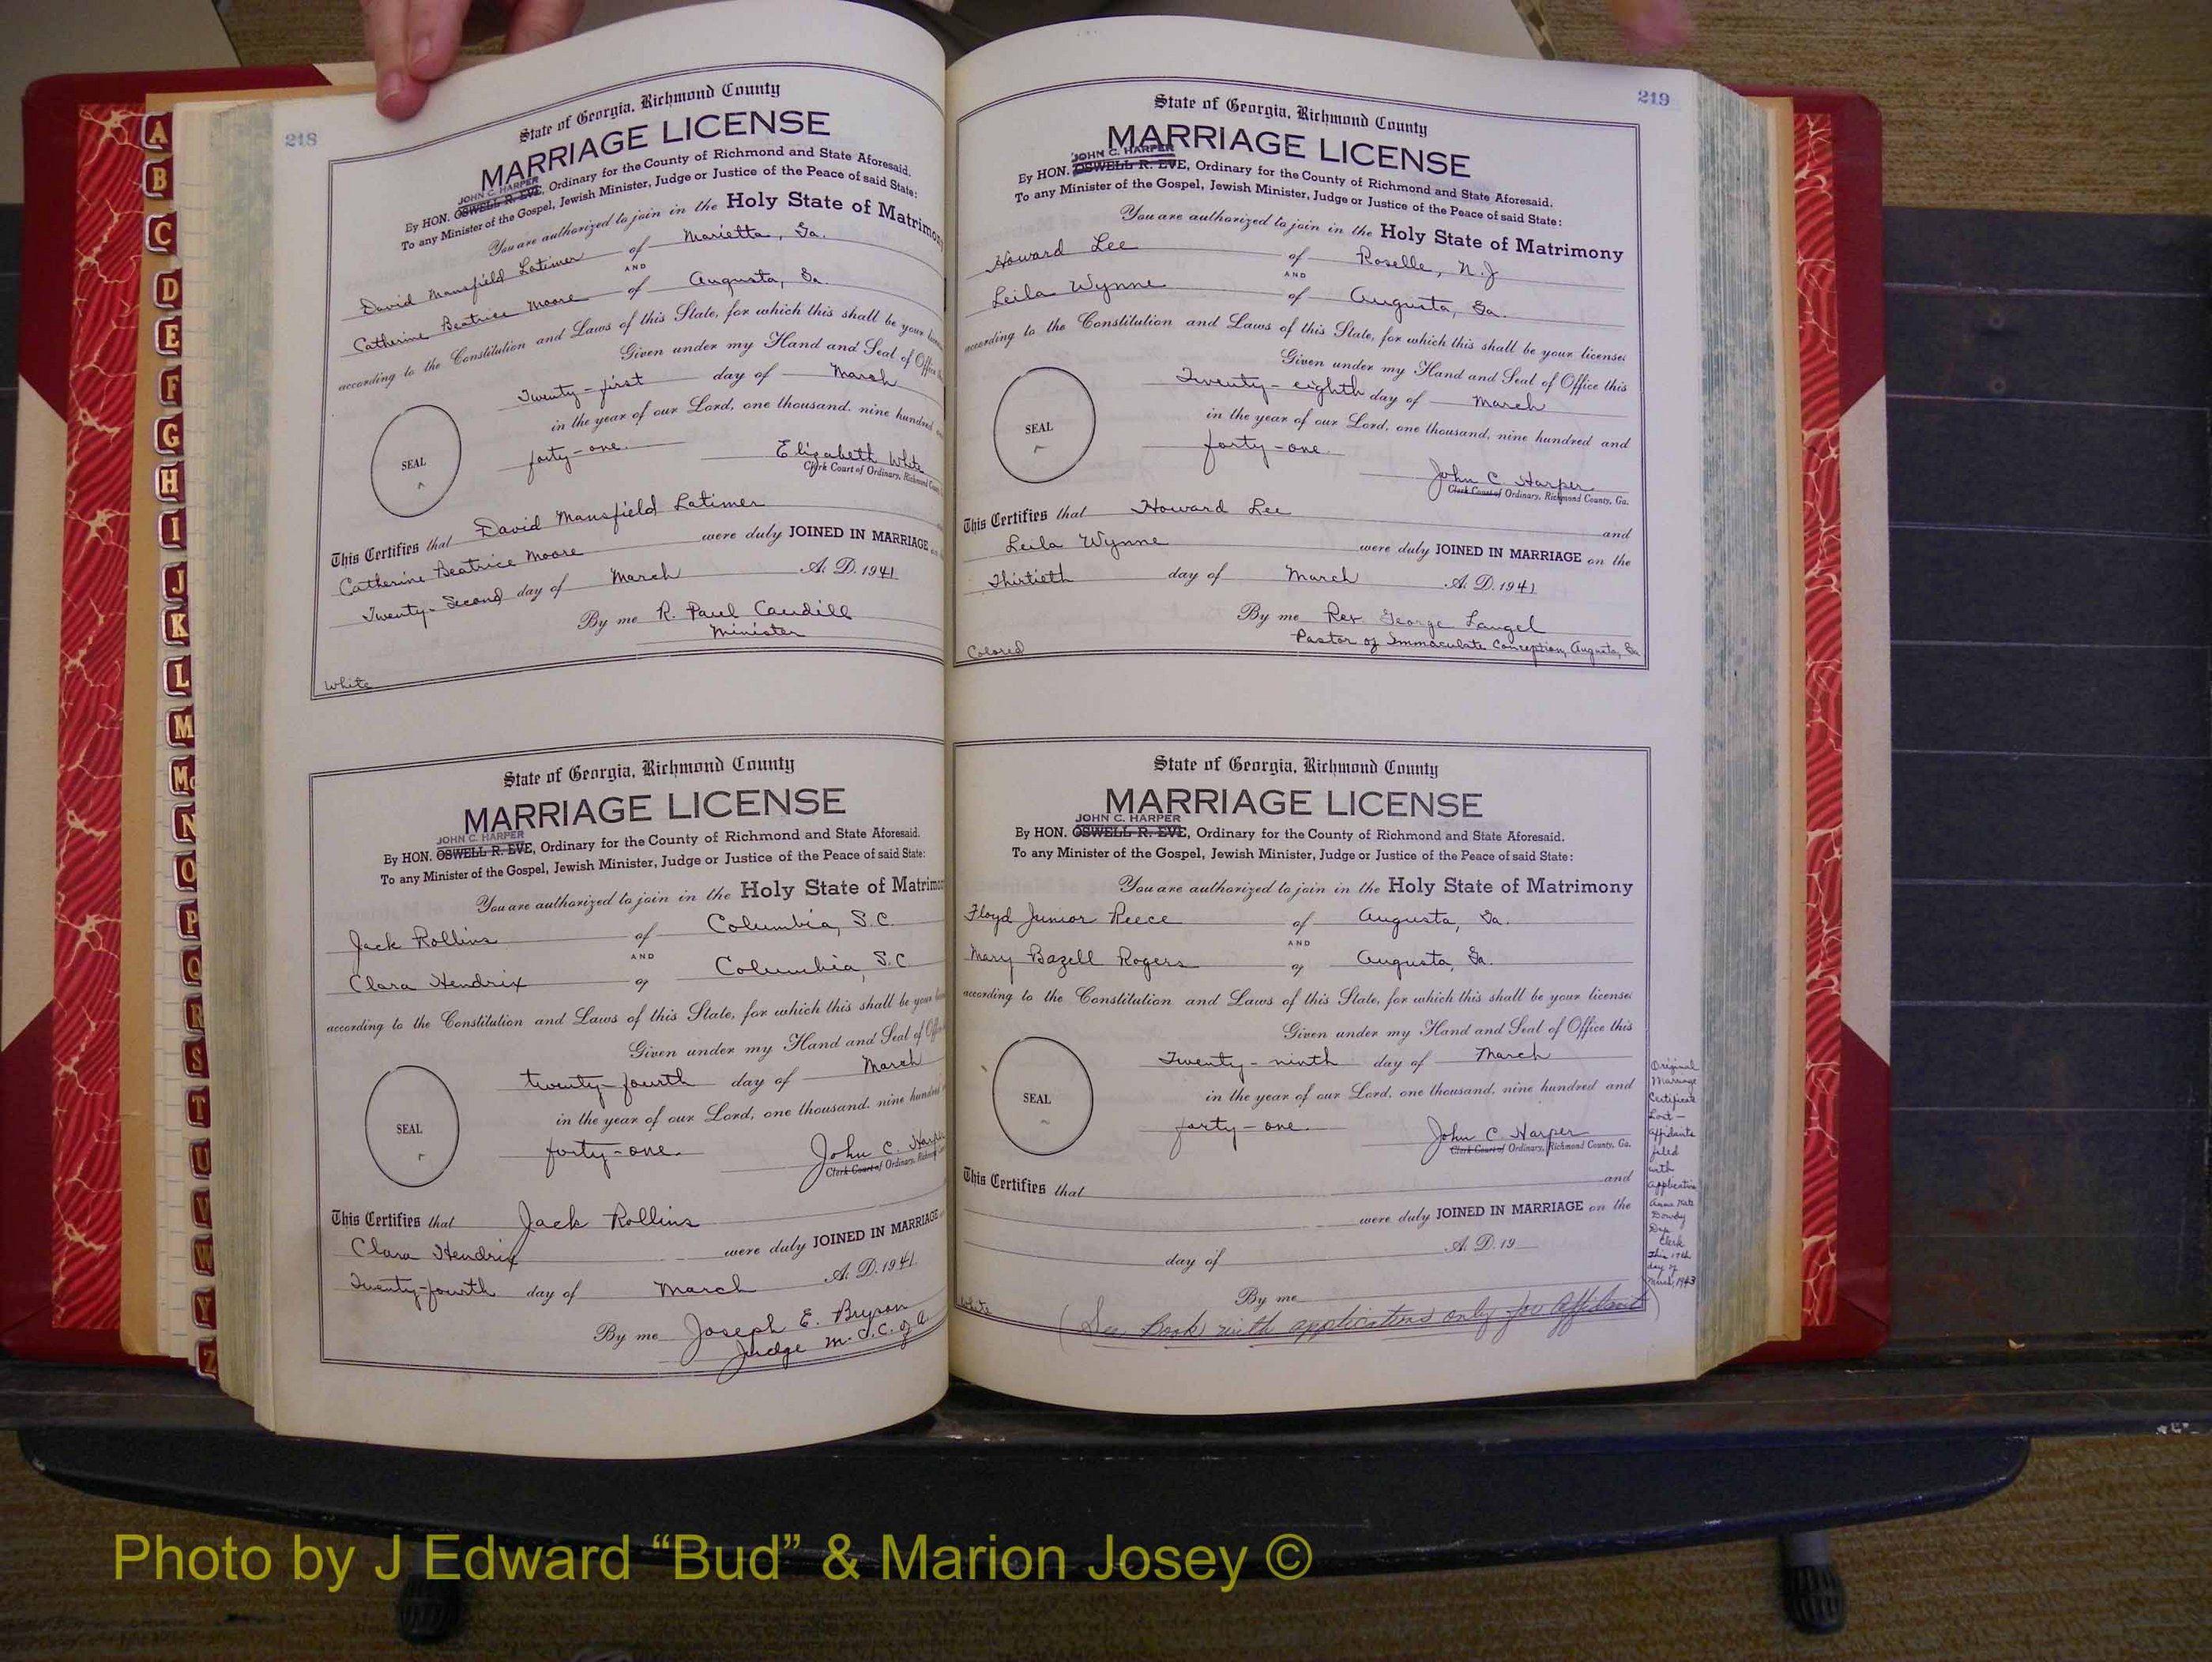 218
State of Georgia, Richmond County
MARRIAGE LICENSE
JOHN C. HARPER
By HON. OSWELL R. EVE, Ordinary for the County of Richmond and State Aforesaid.
To any Minister of the Gospel, Jewish Minister, Judge or Justice of the Peace of said State:
You are authorized to join in the Holy State of Matrimony
David Mansfield Latimer of Marietta, Ga.
AND
Catherine Beatrice Moore of Augusta, Ga.
according to the Constitution and Laws of this State, for which this shall be your
Given under my Hand and Seal of Office
Twenty-first day of March
in the year of our Lord, one thousand, nine hundred
forty-one.
SEAL
Elizabeth White
Clerk Court of Ordinary, Richmond
This Certifies that David Mansfield Latimer
Catherine Beatrice Moore were duly JOINED IN MARRIAGE
Twenty-Second day of March A. D. 1941
By me R. Paul Caudill
Minister
White
State of Georgia, Richmond County
MARRIAGE LICENSE
JOHN C. HARPER
By HON. OSWELL R. EVE, Ordinary for the County of Richmond and State Aforesaid.
To any Minister of the Gospel, Jewish Minister, Judge or Justice of the Peace of said State:
You are authorized to join in the Holy State of Matrimo
Jack Rollins of Columbia, S.C.
AND
Clara Hendrix of Columbia, S.C
according to the Constitution and Laws of this State, for which this shall be your
Given under my Hand and Seal of Office
twenty-fourth day of March
in the year of our Lord, one thousand, nine hundred
forty-one.
SEAL
John C. Harper
Clerk Court of Ordinary, Richmond
This Certifies that Jack Rollins
Clara Hendrix were duly JOINED IN MARRIAGE
Twenty-fourth day of March A. D. 1941
By me Joseph E. Bryson
Judge M.C.C. of A.
219
State of Georgia, Richmond County
MARRIAGE LICENSE
JOHN C. HARPER
By HON. OSWELL R. EVE, Ordinary for the County of Richmond and State Aforesaid.
To any Minister of the Gospel, Jewish Minister, Judge or Justice of the Peace of said State:
You are authorized to join in the Holy State of Matrimony
Howard Lee of Roselle, N.J
AND
Leila Wynne of Augusta, Ga.
according to the Constitution and Laws of this State, for which this shall be your license:
Given under my Hand and Seal of Office this
Twenty-eighth day of March
in the year of our Lord, one thousand, nine hundred and
forty-one.
SEAL
John C. Harper
Clerk Court of Ordinary, Richmond County, Ga.
This Certifies that Howard Lee and
Leila Wynne were duly JOINED IN MARRIAGE on the
Thirtieth day of March A. D. 1941
By me Rev George Laugel
Pastor of Immaculate Conception, Augusta, Ga
Colored
State of Georgia, Richmond County
MARRIAGE LICENSE
JOHN C. HARPER
By HON. OSWELL R. EVE, Ordinary for the County of Richmond and State Aforesaid.
To any Minister of the Gospel, Jewish Minister, Judge or Justice of the Peace of said State:
You are authorized to join in the Holy State of Matrimony
Floyd Junior Reece of Augusta, Ga.
AND
Mary Bazell Rogers of Augusta, Ga.
according to the Constitution and Laws of this State, for which this shall be your license:
Given under my Hand and Seal of Office this
Twenty-ninth day of March
in the year of our Lord, one thousand, nine hundred and
forty-one.
SEAL
John C. Harper
Clerk Court of Ordinary, Richmond County, Ga.
This Certifies that and
were duly JOINED IN MARRIAGE on the
day of A. D. 19
By me
White
(See Book with applications only for Affidavit)
Original
Marriage
Certificate
Lost-
Affidavits
filed
with
application
Anne Kate
Dowdy
Dep.
Clerk
This 17th
day of
March, 1943
A
B
C
D
E
F
G
H
I
J
K
L
M
Mc
N
O
P
Q
R
S
T
U
V
W
Y
Z
Photo by J Edward “Bud” & Marion Josey ©